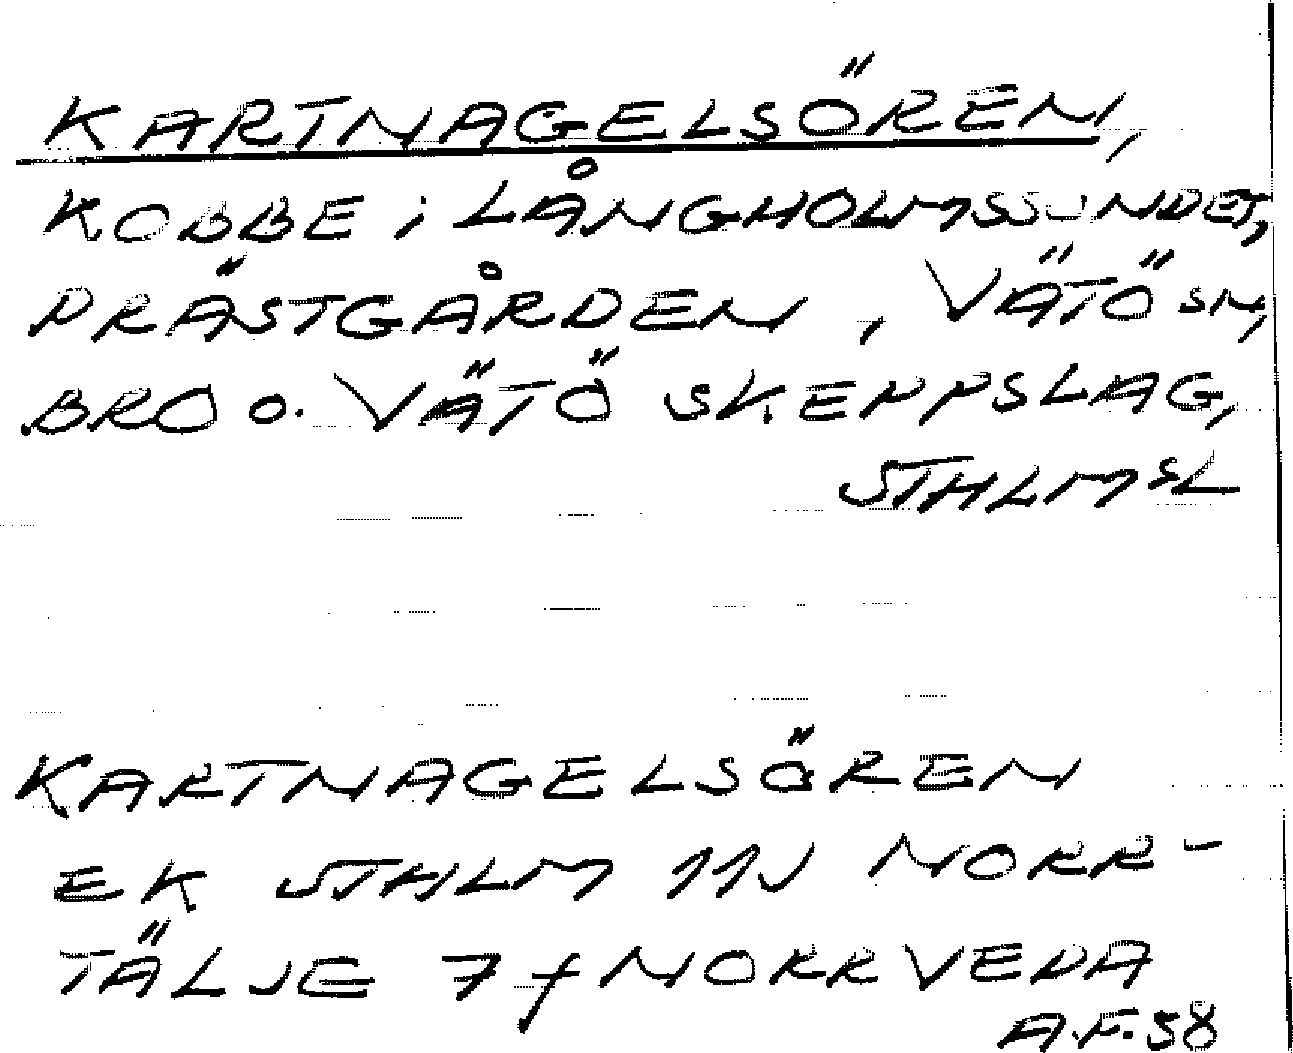 KARTNAGELSÖREN,
KOBBE i LÅNGHOLMSSUNDET,
PRÄSTGÅRDEN, VÄTÖ SN,
BRO O. VÄTÖ SKEPPSLAG,
STHLMSL
KARTNAGELSÖREN
EK STHLM 11J NORR-
TÄLJE 7f NORRVEDA
A.F. 58